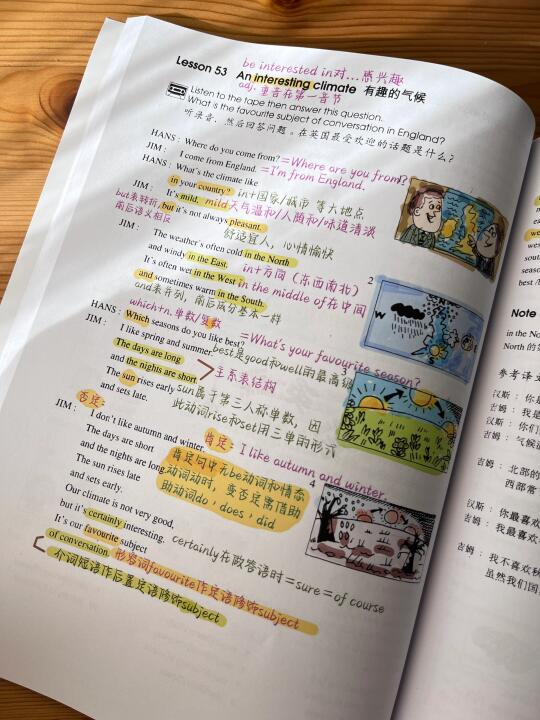 be interested in对...感兴趣
Lesson 53 An interesting climate 有趣的气候
adj. 重音在第一音节
Listen to the tape then answer this question.
What is the favourite subject of conversation in England?
听录音，然后回答问题。在英国最受欢迎的话题是什么？
HANS: Where do you come from? =Where are you from?
JIM: I come from England. =I'm from England.
HANS: What's the climate like
in your country? in+国家/城市 等大地点
JIM: It's mild, mild天气温和/人随和/味道清淡
but it's not always pleasant.
but表转折,
前后语义相反
舒适宜人，心情愉快
JIM: The weather's often cold in the North
and windy in the East. in+方向（东西南北）
It's often wet in the West in the middle of在中间
and sometimes warm in the South.
and表并列，前后成分基本一样
which+n.单数/复数
HANS: Which seasons do you like best? =What's your favourite season?
JIM: I like spring and summer. best是good和well的最高级
The days are long
and the nights are short 主系表结构
The sun rises early sun属于第三人称单数，因
and sets late. 此动词rise和set用三单的形式
否定:
JIM: I don't like autumn and winter. 肯定: I like autumn and winter.
The days are short
and the nights are long. 肯定句中无be动词和情态
The sun rises late 动词时，变否定需借助
and sets early. 助动词do，does，did
Our climate is not very good,
but it's certainly interesting. certainly在做答语时=sure=of course
It's our favourite subject
of conversation. 形容词favourite作定语修饰subject
介词短语作后置定语修饰subject
2
W
3
4
Note
in the Nor
North 的
参考译文
汉斯：你是
吉姆：我是
汉斯：你们
吉姆：气候
吉姆：北部的
西部常
汉斯：你最喜
吉姆：我最喜
吉姆：我不喜欢
虽然我们国